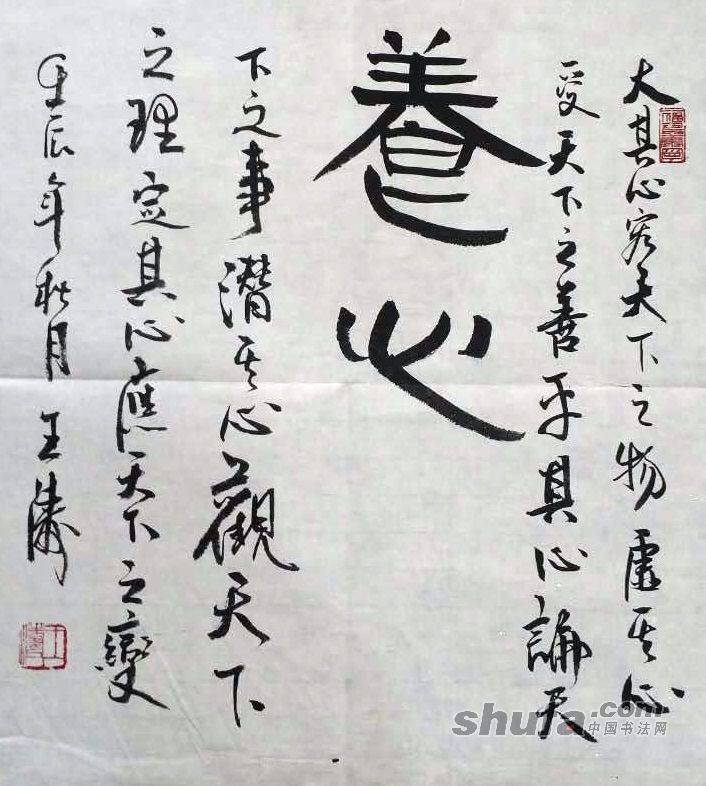 大其心容天下之物虛其心
受天下之善平其心論天
養心
下之事潛其心觀天下
之理定其心應天下之變
壬辰年秋月王濤
shufa.com
中国书法网